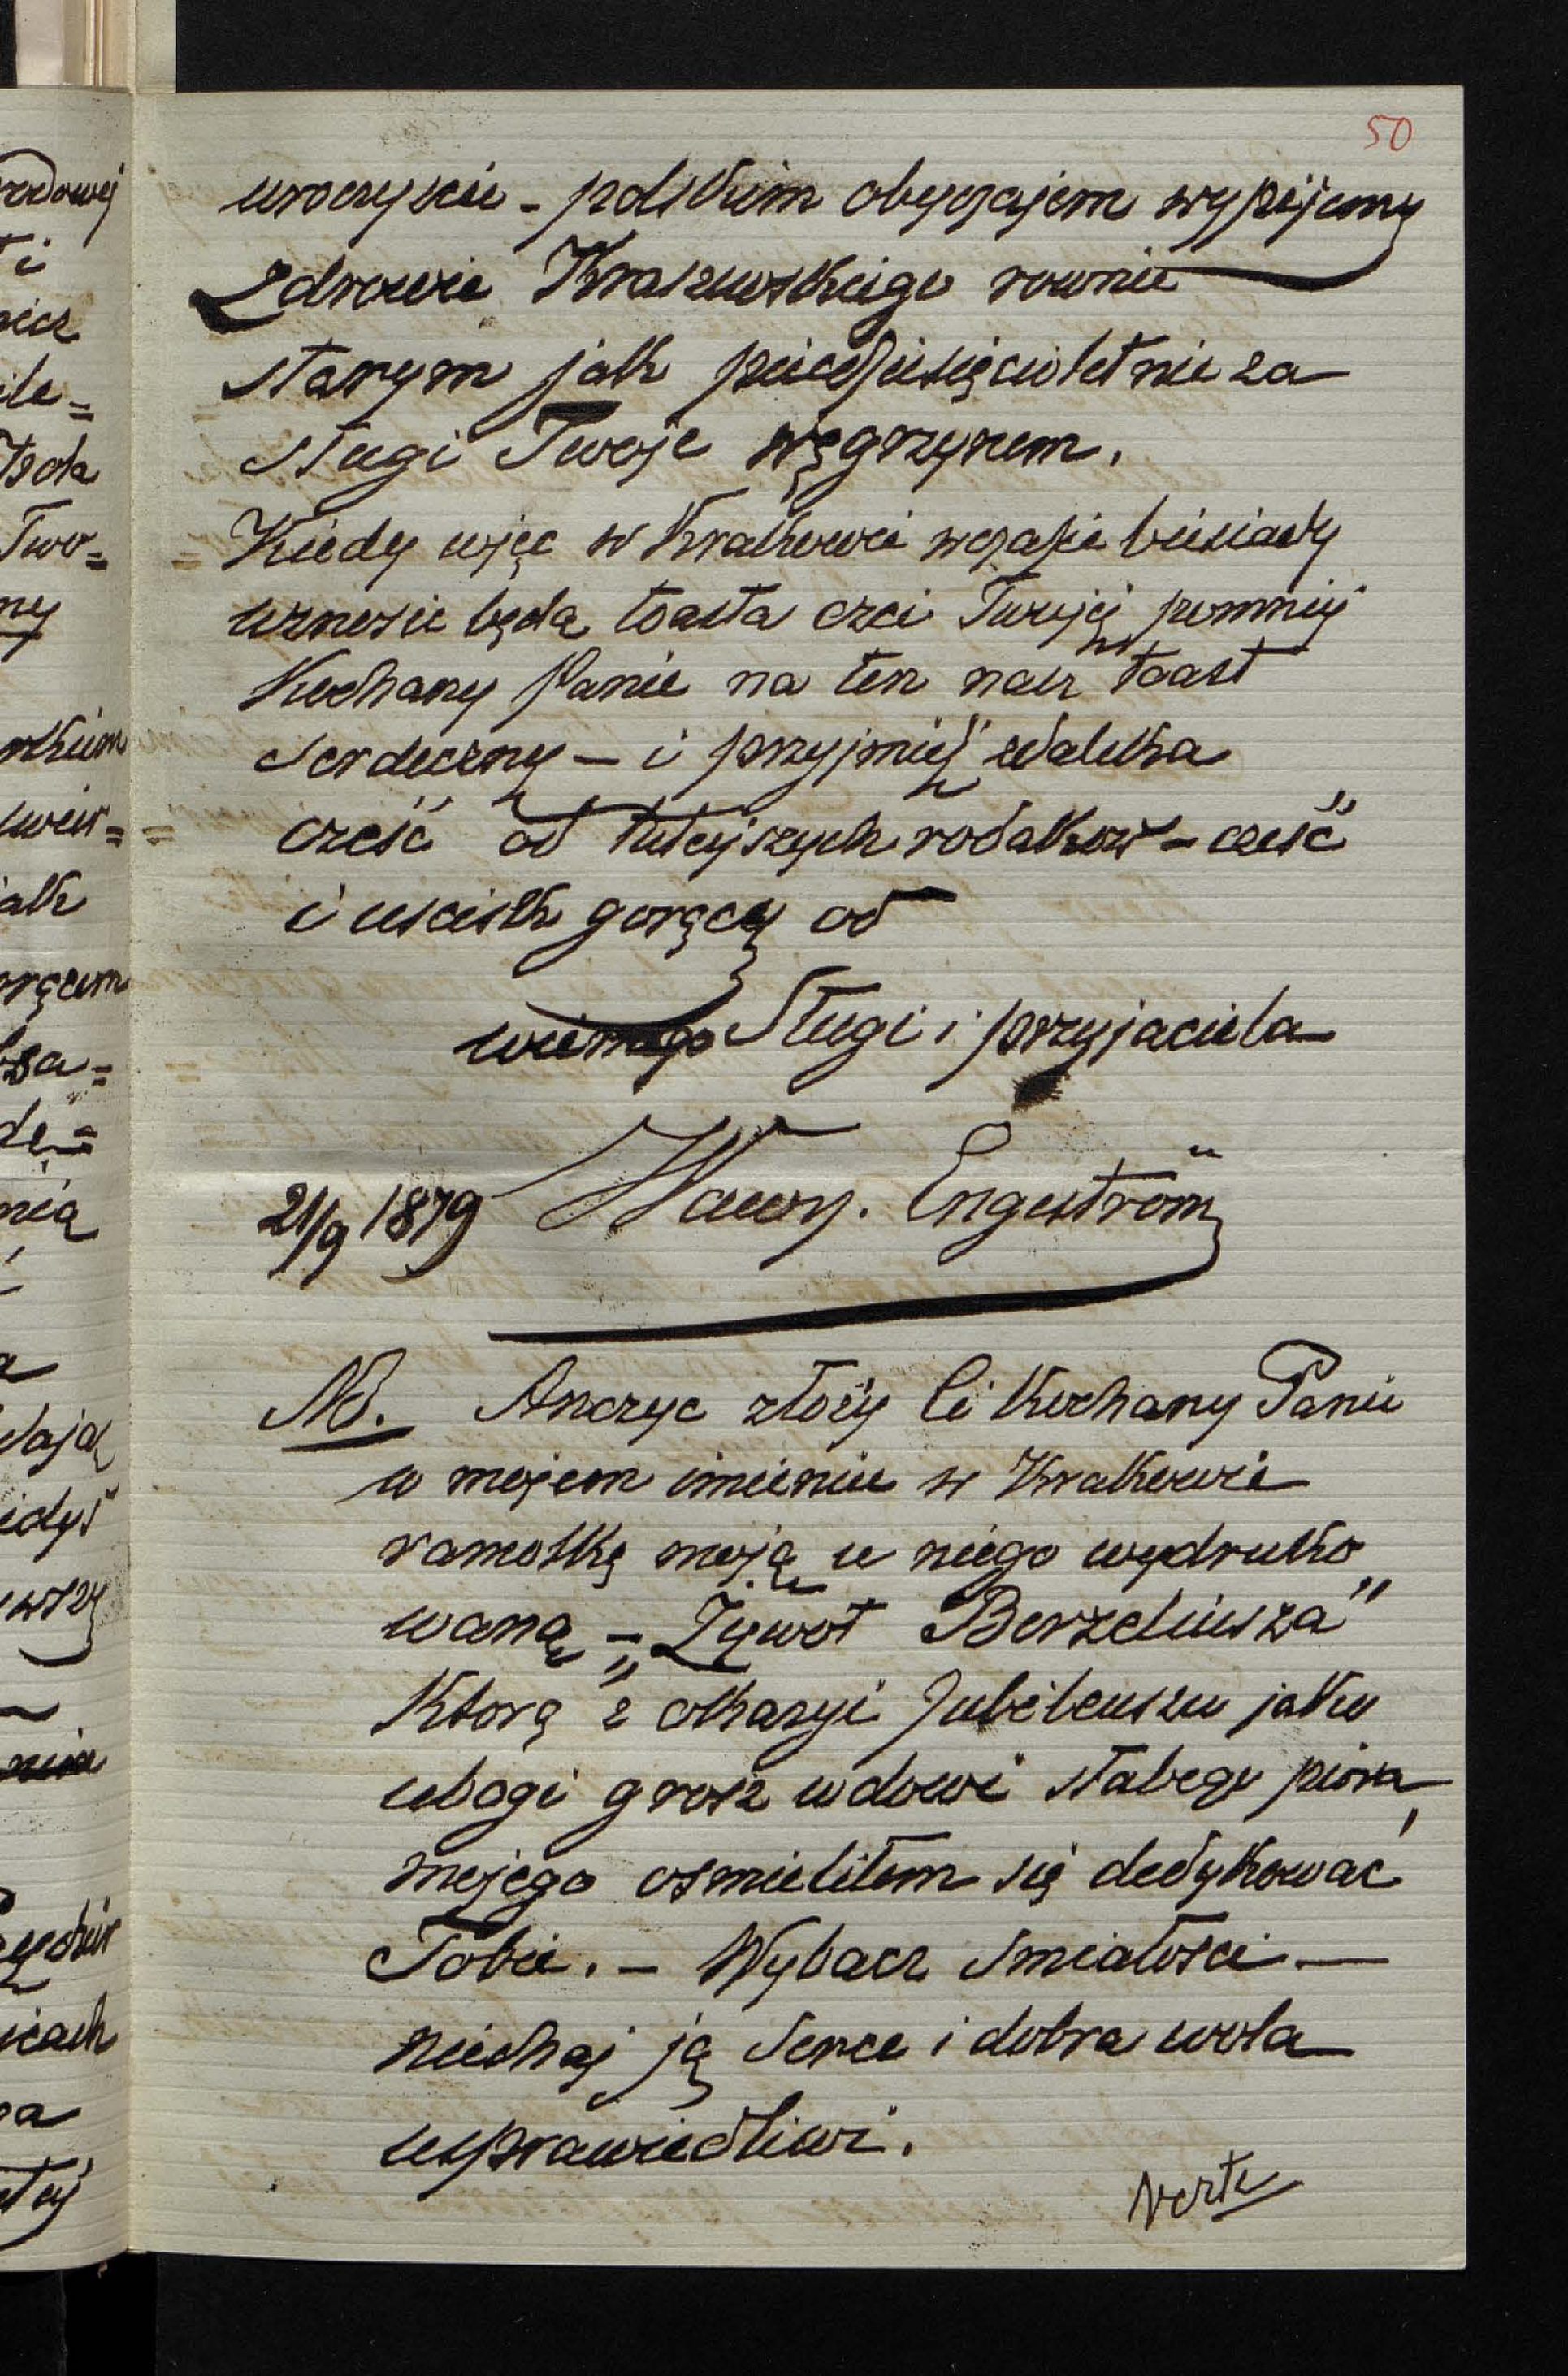 50
uroczyście - polskim obyczajem wypijemy
zdrowie Kraszewskiego rownie
starym jak pięcdziesięcioletnie za
sługi Twoje węgrzynem.
Kiedy więc w Krakowie w czasie biesiady
wznosic będą toasta czci Twojéj pomnij
Kochany Panie na ten nasz toast
serdeczny - i przyjmij zdaleka
cześć od tutejszych rodakow - cześć
i uscisk gorący od
wiernego Sługi i przyjaciela
21/9 1879 Wawrz. Engeström
NB. Anczyc złoży Ci Kochany Panie
w mojem imieniu w Krakowie
ramotkę moją u niego wydruko
waną - „Żywot Berzeliusza"
Ktorą z okazyi Jubileuszu jako
ubogi grosz wdowi słabego piora
mojego osmieliłem się dedykować
Tobie. - Wybacz smiałosci -
niechaj ją Serce i dobra wola
usprawiedliwi.
Verte